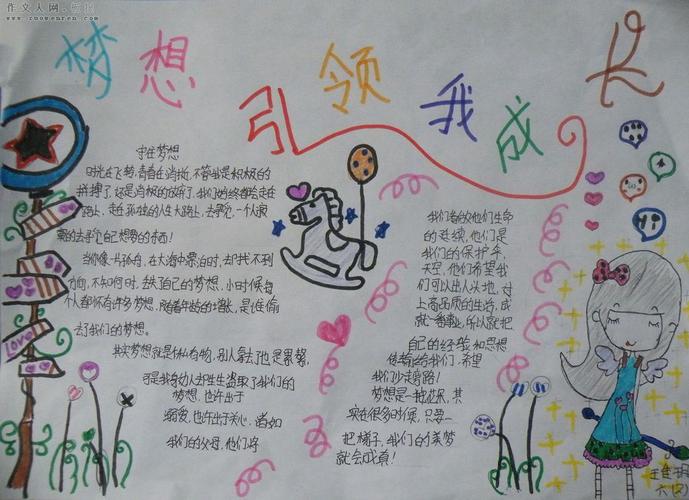 作文人网·校园
www.zuowenren.com
梦想
引领我成长
守住梦想
时光在飞梦，青春在消逝，不管我是积极的
拼搏了，还是消极的放弃了，我们始终都会走在
路上，走在孤独的人生大路上，去享受一个人寂
寞的去享受自己想要的东西！
当你像一片孤舟，在大海中漂泊时，却找不到
方向，不知何时，缺了自己的梦想，小时候每
个人都怀有许多梦想，随着年龄的增长，是谁偷
去了我们的梦想。
其实梦想就是你私有物，别人拿去了也是累赘，
可是我身幼人却生生盗取了我们的
梦想，也许出于
溺爱，也许出于关心，诸如
我们的父母，他们将
我们看的他们生命
的延续，他们是
我们的保护手，
天空，他们希望我
们可以出人头地，对
上高品质的生活，成
就一番事业，所以就把
自己的经验和思想
传输给我们，希望
我们少走弯路！
梦想是一枝花朵，其
实在很多时候，只要一
把梯子，我们的美梦
就会成真！
Love